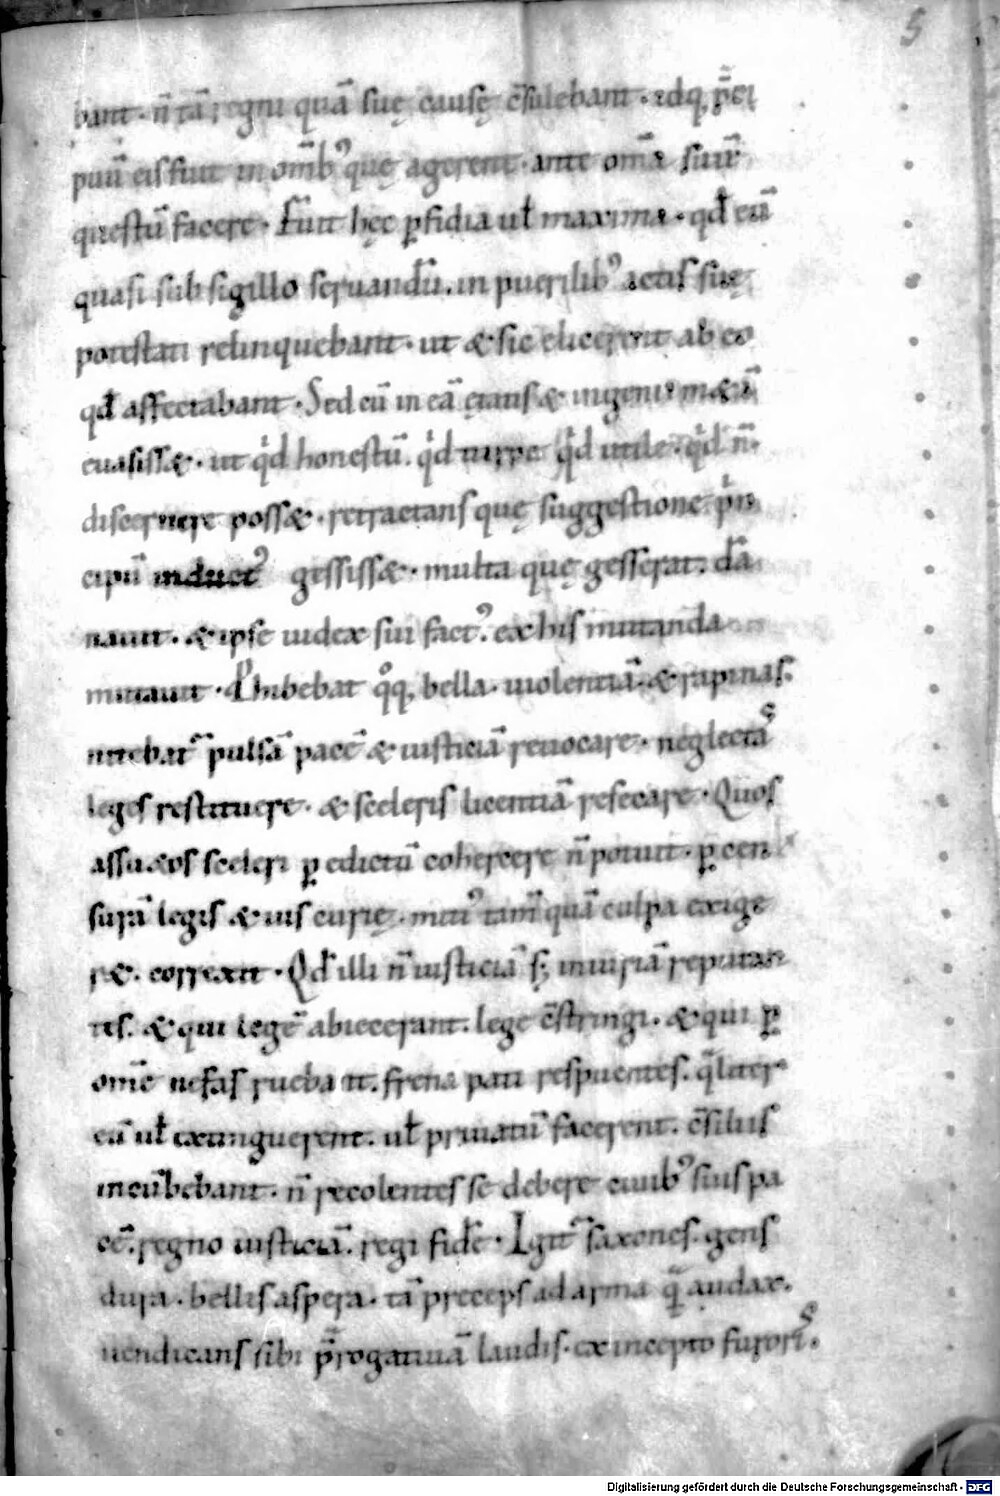 5
bant · n̄ tā regni quā suę causę c̄sulebant · idq, p̄ci
puū eis fuit in om̄ib᾽ quę agerent · ante om̄a suū
questū facere · Fuit hęc ꝑfidia ul̄ maxima · qd̄ eū
quasi sub sigillo seruandū. in puerilib᾽ actis suę
potestati relinquebant · ut & sic elicerent ab eo
qd̄ affectabant · Sed cū in eā ętatis & ingenii metā
euasiss& · ut qͥd honestū. qͥd turpe qͥd utile · qͥd n̄ ·
discernere poss& · retractans quę suggestione pͥn
cipū induct᾽ gessiss& · multa quę gesserat. dā
nauit · & ipse iudex sui fact᾽. ex his mutanda
mutauit · Phibebat qͦq, bella · uiolentiā · & rapinas.
nitebat᷑ pulsā pacē & iusticiā reuocare · neglectas
leges restituere · & sceleris licentiā resecare · Quos
assu&os sceleri ꝑ edictū cohercere n̄ potuit · ꝑ cen
surā legis & ius curię · miti᾽ tam̄ quā culpa exige
r& · correxit · Qd̄ illi n̄ iusticiā sꝫ iniuriā reputan
tes. & qui legē abiecerant. lege c̄stringi. & qui ꝑ
om̄e nefas ruebant. frena pati respuentes. qͣliter
eū ul̄ extinguerent. ul̄ priuatū facerent. c̄siliis
incūbebant. n̄ recolentes se debere ciuib᾽ suis pa
cē. regno iusticiā. regi fidē · Igit᷑ saxones. gens
dura · bellis aspera · tā preceps ad arma qͣ̄ audax.
uendicans sibi p̄rogatiuā laudis. ex incepto furoris.
Digitalisierung gefördert durch die Deutsche Forschungsgemeinschaft - DFG